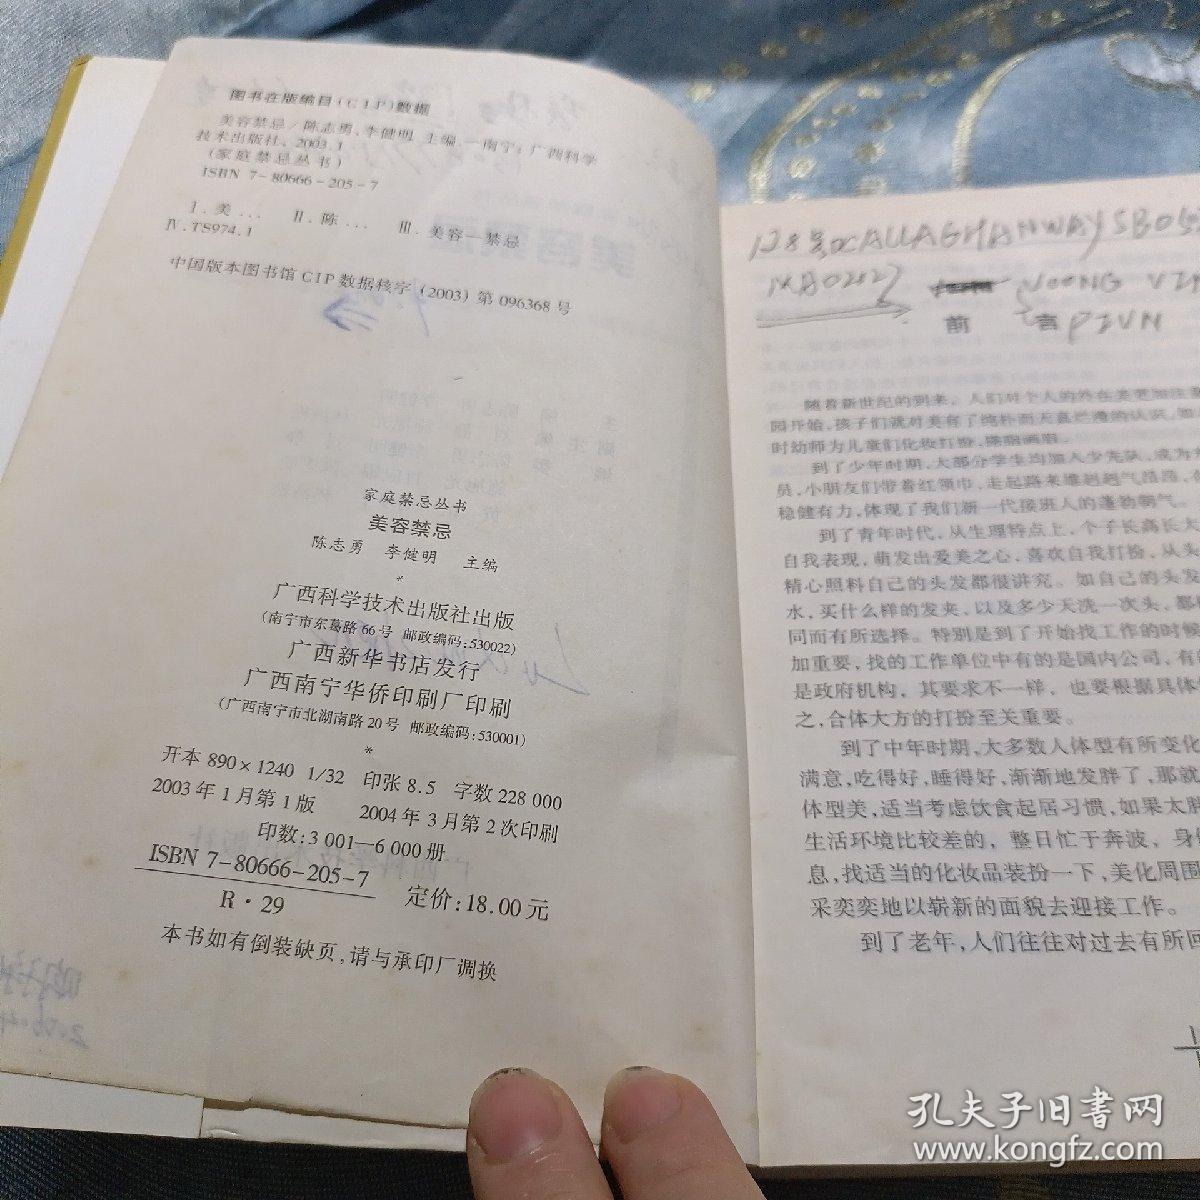 图书在版编目(CIP)数据
美容禁忌／陈志勇、李健明 主编.—南宁：广西科学
技术出版社，2003.1
(家庭禁忌丛书)
ISBN 7-80666-205-7
Ⅰ.美… Ⅱ.陈… Ⅲ.美容—禁忌
Ⅳ.TS974.1
中国版本图书馆CIP数据核字(2003)第096368号
家庭禁忌丛书
美容禁忌
陈志勇 李健明 主编
*
广西科学技术出版社出版
(南宁市东葛路66号 邮政编码:530022)
广西新华书店发行
广西南宁华侨印刷厂印刷
(广西南宁市北湖南路20号 邮政编码:530001)
*
开本 890×1240 1/32 印张 8.5 字数 228 000
2003年1月第1版 2004年3月第2次印刷
印数:3 001—6 000册
ISBN 7-80666-205-7
R·29
定价:18.00元
本书如有倒装缺页,请与承印厂调换
前言
随着新世纪的到来，人们对个人的外在美更加注
园开始，孩子们就对美有了纯朴而天真烂漫的认识，如
时幼师为儿童们化妆打扮，搽脂画眉。
到了少年时期，大部分学生均加入少先队，成为
员，小朋友们带着红领巾，走起路来雄赳赳气昂昂，
稳健有力，体现了我们新一代接班人的蓬勃朝气。
到了青年时代，从生理特点上，个子长高长大
自我表现，萌发出爱美之心，喜欢自我打扮，从头
精心照料自己的头发都很讲究。如自己的头发
水，买什么样的发夹，以及多少天洗一次头，都
同而有所选择。特别是到了开始找工作的时候
加重要，找的工作单位中有的是国内公司，有
是政府机构，其要求不一样，也要根据具体
之，合体大方的打扮至关重要。
到了中年时期，大多数人体型有所变化
满意，吃得好，睡得好，渐渐地发胖了，那就
体型美，适当考虑饮食起居习惯，如果太
生活环境比较差的，整日忙于奔波，身
息，找适当的化妆品装扮一下，美化周围
采奕奕地以崭新的面貌去迎接工作。
到了老年，人们往往对过去有所回
孔夫子旧书网
www.kongfz.com